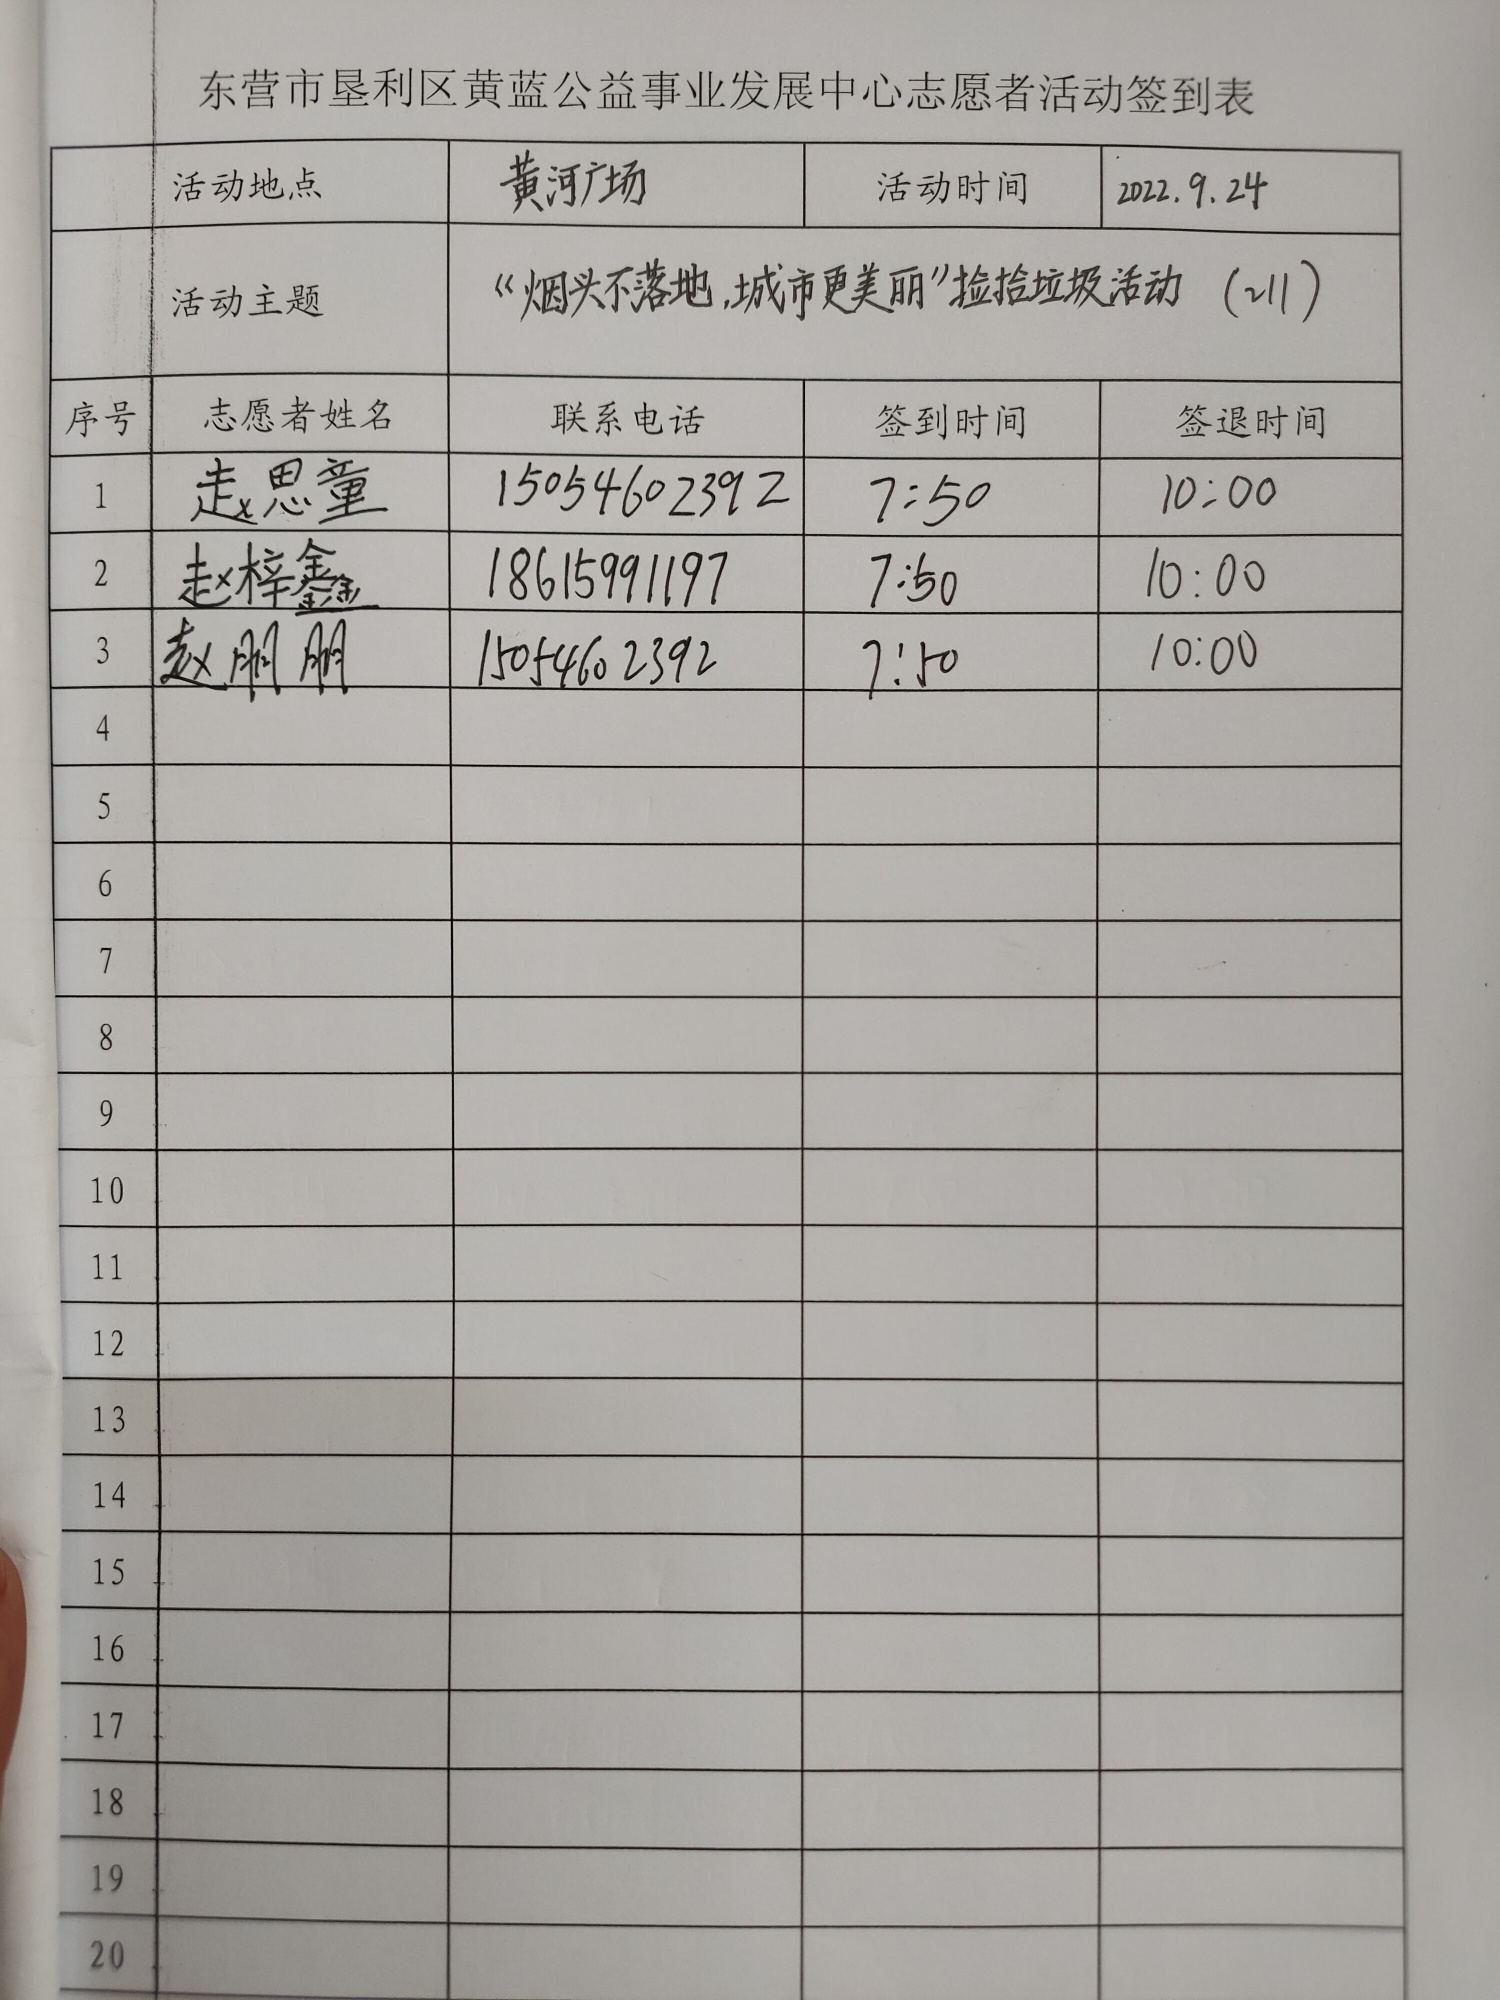 东营市垦利区黄蓝公益事业发展中心志愿者活动签到表
活动地点 黄河广场 活动时间 2022.9.24
活动主题 “烟头不落地,城市更美丽”捡拾垃圾活动 (211)
序号 志愿者姓名 联系电话 签到时间 签退时间
1 赵思童 15054602392 7:50 10:00
2 赵梓鑫 18615991197 7:50 10:00
3 赵朋朋 15054602392 7:50 10:00
4
5
6
7
8
9
10
11
12
13
14
15
16
17
18
19
20